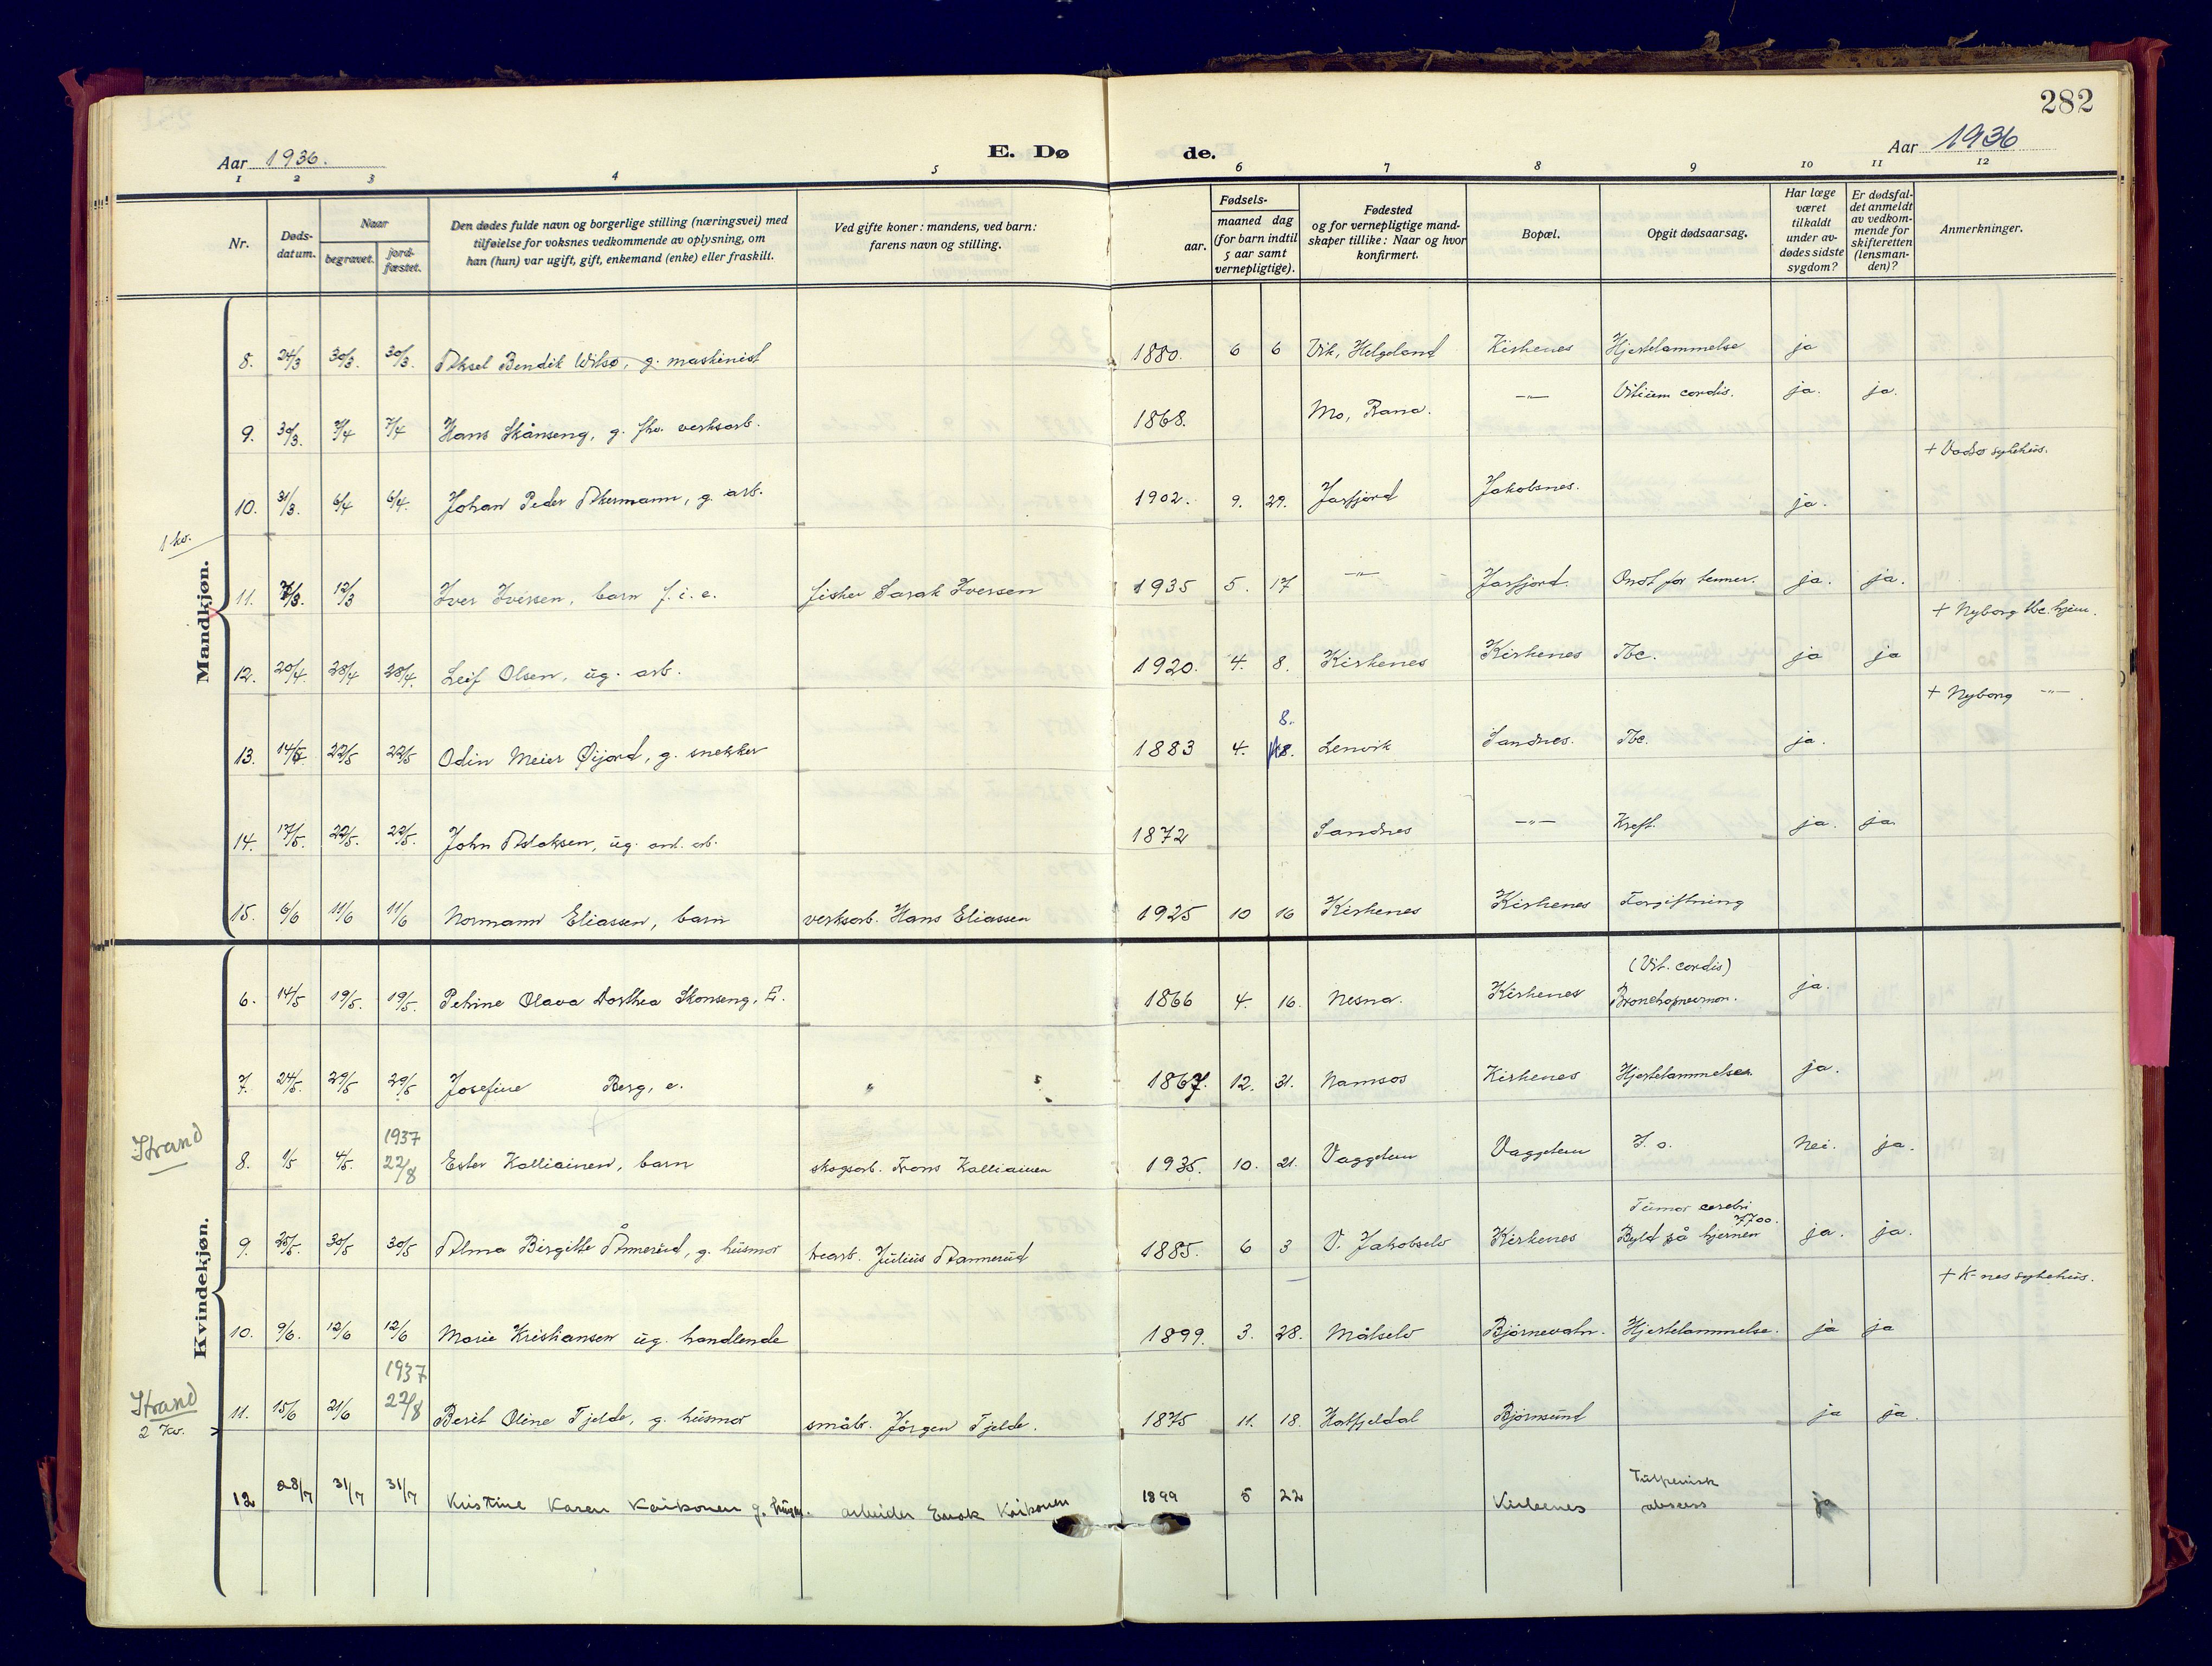 282
Aar 1936.
E. Dø de.
Aar 1936
1 2 3 4 5 6 7 8 9 10 11 12
Nr.
Døds-
datum.
Naar
begravet.
jord-
fæstet.
Den dødes fulde navn og borgerlige stilling (næringsvei) med
tilføielse for voksnes vedkommende av oplysning, om
han (hun) var ugift, gift, enkemand (enke) eller fraskilt.
Ved gifte koner: mandens, ved barn:
farens navn og stilling.
Fødsels-
aar.
maaned dag
(for barn indtil
5 aar samt
vernepligtige).
Fødested
og for vernepligtige mand-
skaper tillike: Naar og hvor
konfirmert.
Bopæl.
Opgit dødsaarsag.
Har læge
været
tilkaldt
under av-
dødes sidste
sygdom?
Er dødsfal-
det anmeldt
av vedkom-
mende for
skifteretten
(lensman-
den)?
Anmerkninger.
Mandkjøn.
8. 24/3 30/3. 30/3. Aksel Bendik Wilsø, g. maskinist 1880. 6 6 Vik, Helgeland Kirkenes Hjertelammelse ja
9. 30/3. 7/4 7/4 Hans Skånseng, g. fhv. verksarb. 1868. Mo, Rana. —"— Vitium cordis. ja. ja.
+ Vadsø sykehus.
10. 31/3. 6/4 6/4. Johan Peder Akermann, g. arb. 1902. 9. 29. Jarfjord Jakobsnes. ja.
1 kv.
11. 7/3. 12/3 Iver Iversen, barn f. i. e. fisker Sarak Iversen 1935 5. 17 —"— Jarfjord. Ondt for tenner. ja. ja.
+ Nyborg tbc. hjem.
12. 20/4. 28/4 28/4. Leif Olsen, ug. arb. 1920. 4. 8. Kirkenes Kirkenes Tbc. ja ja
+ Nyborg —"— .
8.
13. 14/5 22/5 22/5 Odin Meier Øijord, g. snekker 1883 4. 18. Lenvik Sandnes. Tbc. ja.
14. 17/5. 22/5. 22/5. John Aslaksen, ug. anl. arb. 1872 Sandnes —"— Kreft. ja. ja.
15. 6/6 11/6 11/6 Normann Eliassen, barn verksarb. Hans Eliassen 1925 10 16 Kirkenes Kirkenes Forgiftning
Kvindekjøn.
(Vit. cordis)
6. 14/5 19/5. 19/5. Petrine Olava Dorthea Skonseng, E. 1866 4. 16. Nesna. Kirkenes Bronchopneumon. ja.
7. 24/5. 29/5 29/5 Josefine Berg, e. " 1867. 12. 31. Namsos Kirkenes Hjertelammelse. ja.
Strand
1937
8. 1/5 4/5. 22/8 Ester Kalliainen, barn skogsarb. Frans Kalliainen 1935. 10. 21. Vaggetem Vaggetem Nei. ja.
Tumor cerebri
9. 25/5. 30/5 30/5 Alma Birgitte Ånnerud, g. husmor Julius Aannerud 1885. 6 3 V. Jakobselv Kirkenes Byld på hjernen ja. ja.
+ K-nes sykehus.
10. 9/6. 12/6 12/6 Marie Kristiansen ug. handlende 1899. 3. 28. Målselv Bjørnevatn. Hjertelammelse. ja ja
1937
Strand
2 kv.
11. 15/6 21/6 22/8 Berit Oline Fjelde, g. husmor småbr. Jørgen Fjelde. 1875 11. 18. Hatfjeldal Bjørnsund ja ja.
12 28/7 31/7 31/7 Kristine Karen Kaikonen g. husm. arbeider Enok Kaikonen 1899 5 22 Kirkenes abscess ja